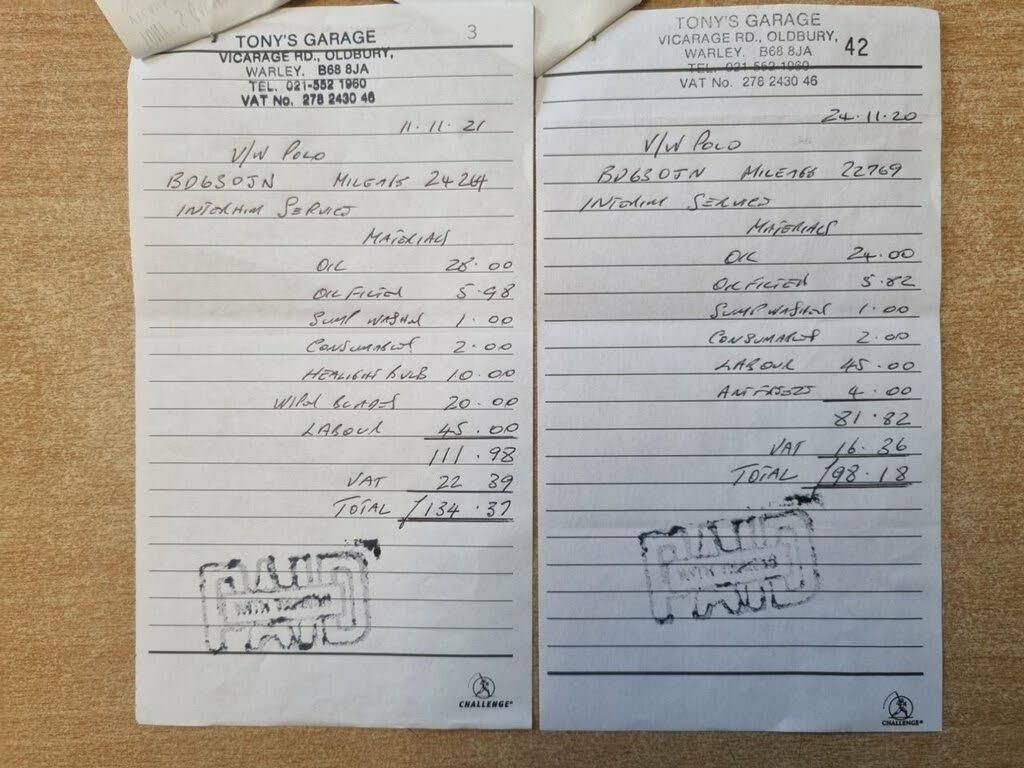 TONY'S GARAGE
3
VICARAGE RD., OLDBURY,
WARLEY. B68 8JA
TEL. 021-552 1960
VAT No. 278 2430 46
11·11·21
V/W POLO
BD63OJN MILEAGE 24264
INTERHIM SERVICE
MATERIALS
OIL 28·00
OIL FILTER 5·98
SUMP WASHER 1·00
CONSUMABLES 2·00
HEALIGHT BULB 10·00
WIPER BLADES 20·00
LABOUR 45·00
111·98
VAT 22 39
TOTAL /134·37
PAID
CHALLENGE®
TONY'S GARAGE
VICARAGE RD., OLDBURY,
WARLEY. B68 8JA
42
TEL. 021-552 1960
VAT No. 278 2430 46
24·11·20
V/W POLO
BD63OJN MILEAGE 22769
INTERIM SERVICE
MATERIALS
OIL 24·00
OIL FILTER 5·82
SUMP WASHER 1·00
CONSUMABLES 2·00
LABOUR 45·00
ANTIFREEZE 4·00
81·82
VAT 16·36
TOTAL /98·18
PAID
CHALLENGE®